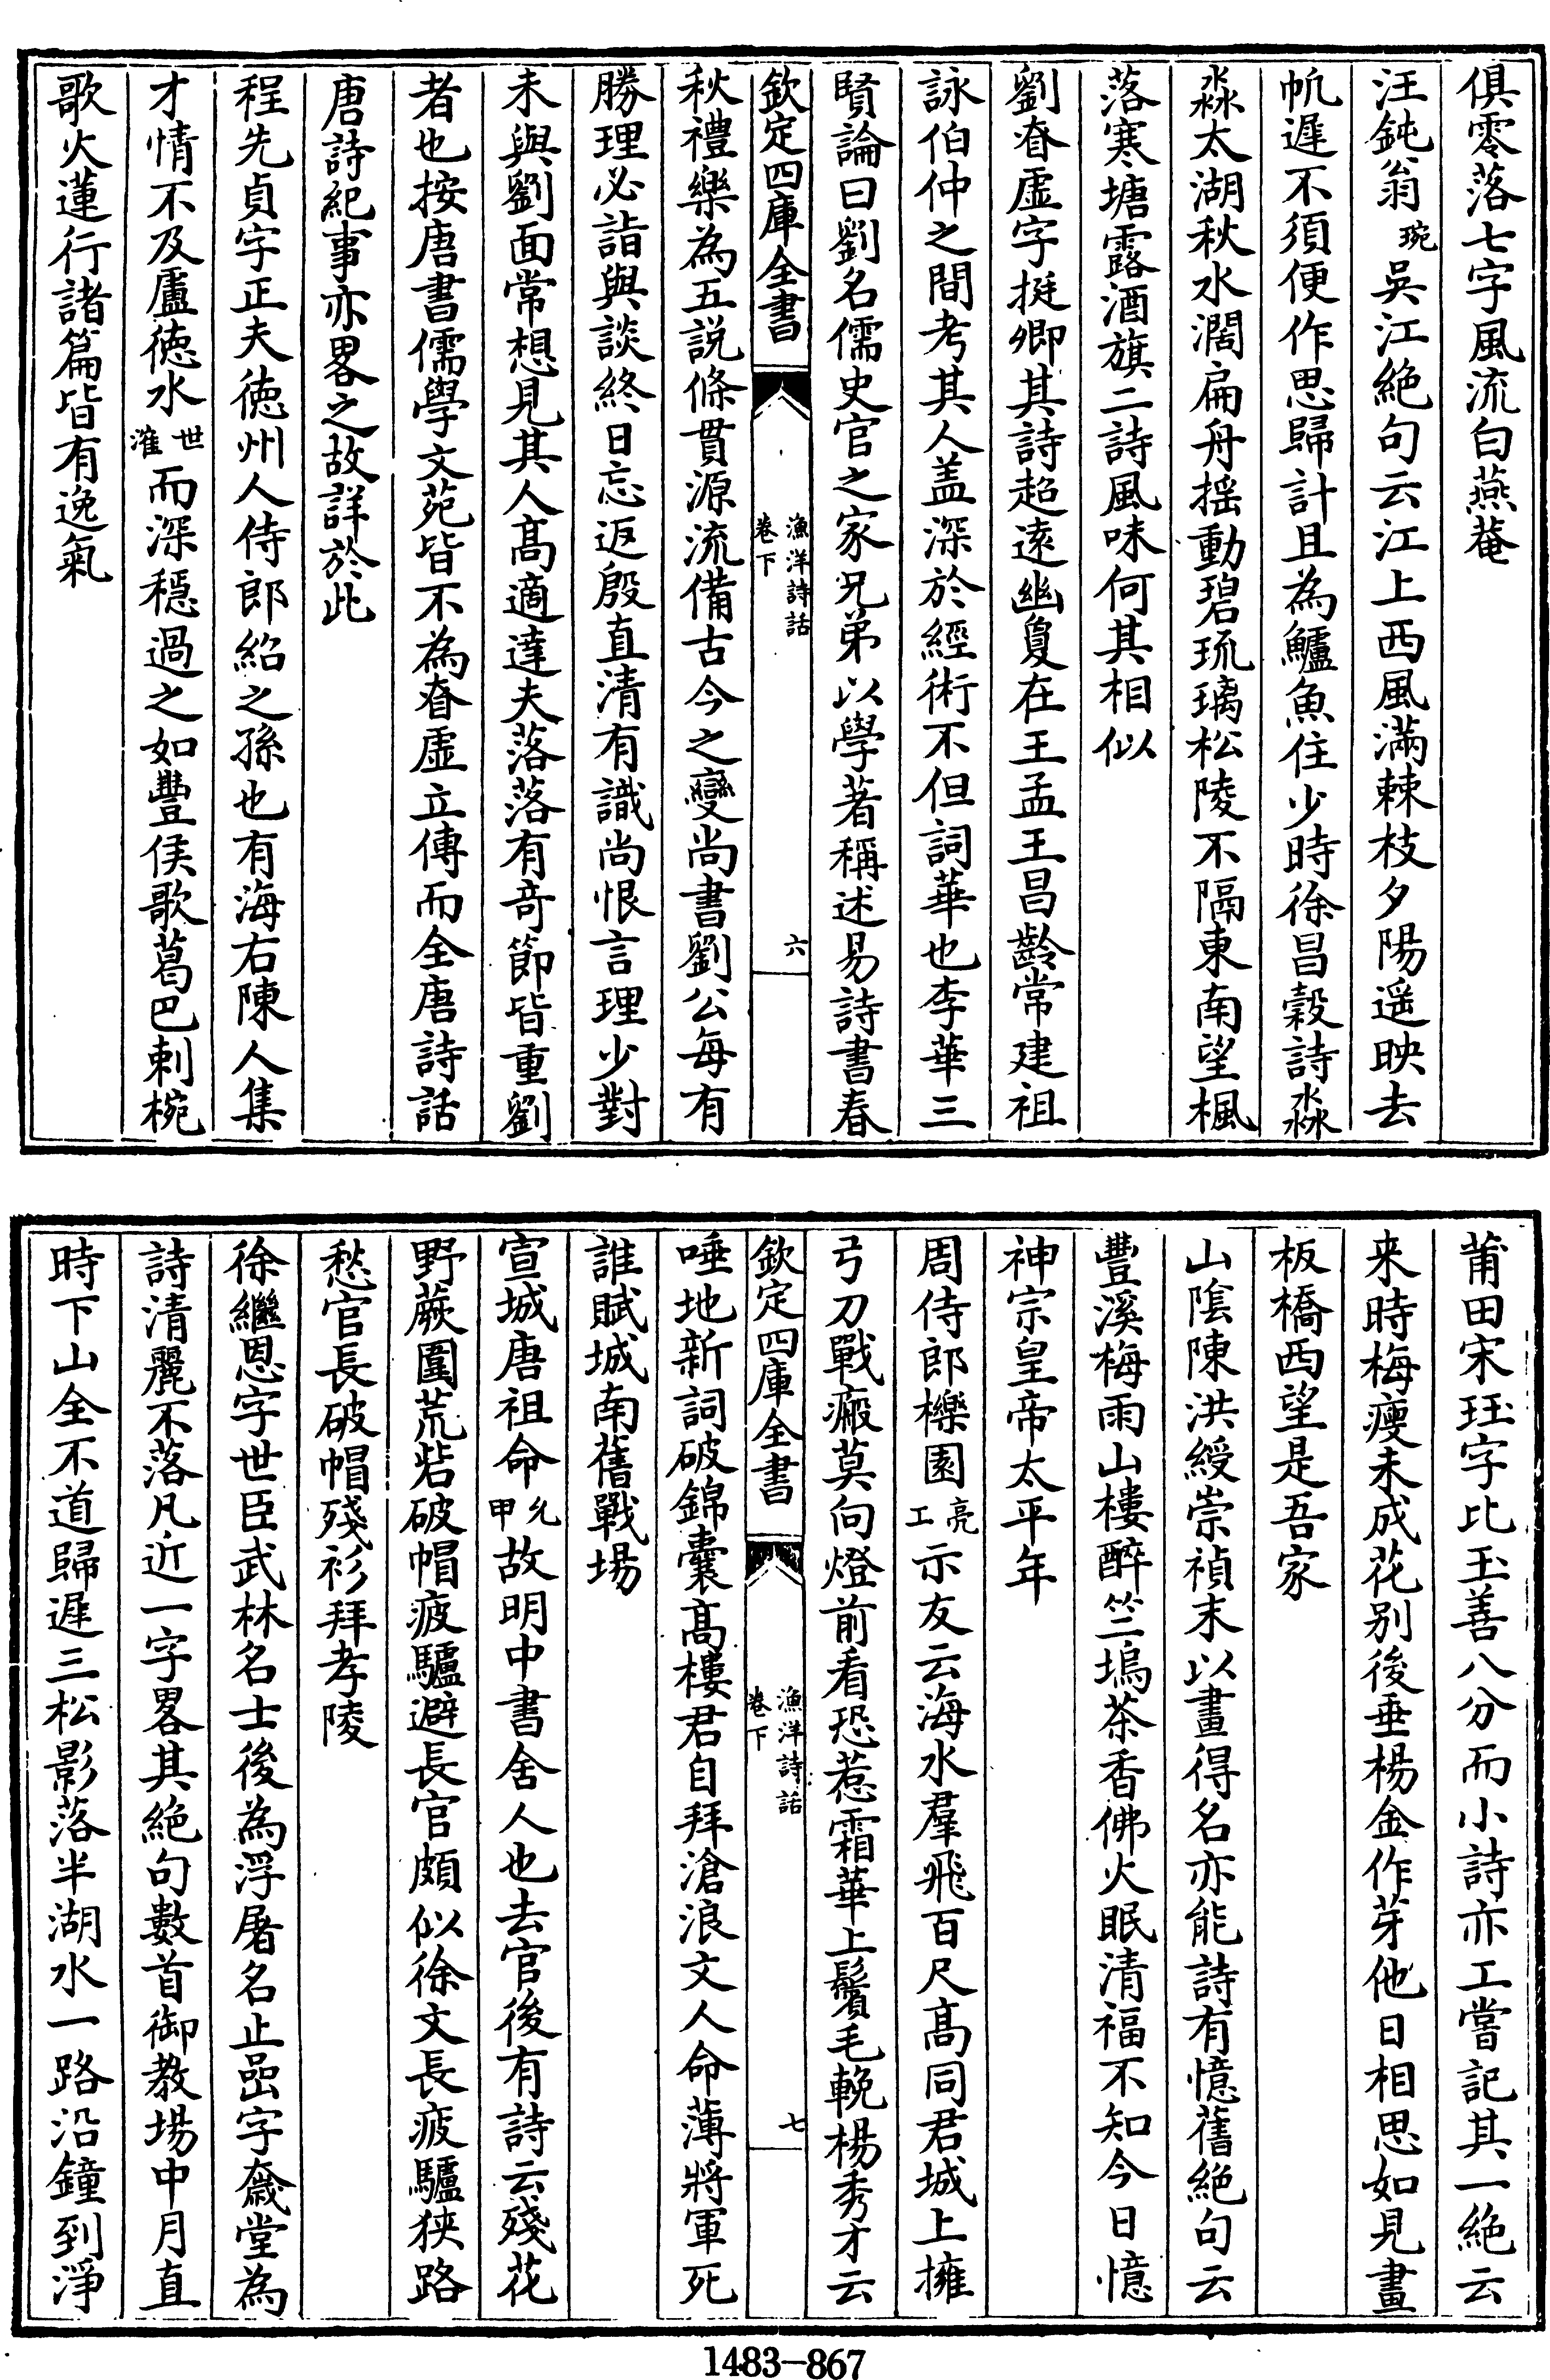 俱零落七字風流白燕菴
汪鈍翁琬吳江絶句云江上西風滿棘枝夕陽遥映去
帆遲不須便作思歸計且為鱸魚住少時徐昌糓詩淼
淼太湖秋水濶扁舟摇動碧琉璃松陵不隔東南望楓
落寒塘露酒旗二詩風味何其相似
劉眘虚字挺卿其詩超遠幽敻在王孟王昌齡常建祖
詠伯仲之間考其人盖深於經術不但詞華也李華三
賢論曰劉名儒史官之家兄弟以學著稱述易詩書春
欽定四庫全書 漁洋詩話 卷下 六
秋禮樂為五説條貫源流備古今之變尚書劉公每有
勝理必詣與談終日忘返殷直清有識尚恨言理少對
未與劉面常想見其人髙適達夫落落有竒節皆重劉
者也按唐書儒學文苑皆不為眘虚立傳而全唐詩話
唐詩紀事亦畧之故詳於此
程先貞字正夫徳州人侍郎紹之孫也有海右陳人集
才情不及盧徳水世㴶而深穩過之如豐侯歌葛巴剌椀
歌火蓮行諸篇皆有逸氣
莆田宋珏字比玉善八分而小詩亦工嘗記其一絶云
来時梅瘦未成花别後垂楊金作芽他日相思如見畫
板橋西望是吾家
山隂陳洪綬崇禎末以畫得名亦能詩有憶舊絶句云
豐溪梅雨山樓醉竺塢茶香佛火眠清福不知今日憶
神宗皇帝太平年
周侍郎櫟園亮工示友云海水羣飛百尺髙同君城上擁
弓刀戰瘢莫向燈前看恐惹霜華上鬢毛輓楊秀才云
欽定四庫全書 漁洋詩話 卷下 七
唾地新詞破錦囊髙樓君自拜滄浪文人命薄將軍死
誰賦城南舊戰場
宣城唐祖命允甲故明中書舍人也去官後有詩云殘花
野蕨圍荒砦破帽疲驢避長官頗似徐文長疲驢狹路
愁官長破帽殘衫拜孝陵
徐繼恩字世臣武林名士後為浮屠名止嵒字𪗋堂為
詩清麗不落凡近一字畧其絶句數首御教場中月直
時下山全不道歸遲三松影落半湖水一路沿鐘到淨
1483-867